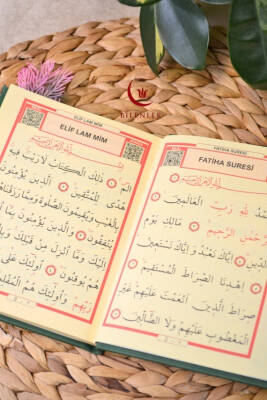 BİLENLER
FATİHA SURESİ
FATİHA SURESİ
لِلّٰهِ رَبِّ الْعَالَمِينَ
الرَّحْمٰنِ الرَّحِيمِ مَالِكِ يَوْمِ
اِيَّاكَ نَعْبُدُ وَاِيَّاكَ نَسْتَعِينُ
اِهْدِنَا الصِّرَاطَ الْمُسْتَقِيمَ
صِرَاطَ الَّذِينَ اَنْعَمْتَ عَلَيْهِمْ غَيْرِ
الْمَغْضُوبِ عَلَيْهِمْ وَلَا الضَّالِّينَ
ELİF LAM MİM
ELİF LAM MİM
الٓمٓ ذٰلِكَ الْكِتَابُ لَا رَيْبَ فِيهِ
هُدًى لِلْمُتَّقِينَ الَّذِينَ يُؤْمِنُونَ
بِالْغَيْبِ وَيُقِيمُونَ الصَّلٰوةَ وَمِمَّا رَزَقْنَاهُمْ
يُنْفِقُونَ وَالَّذِينَ يُؤْمِنُونَ بِمَا
اِلَيْكَ وَمَا اُنْزِلَ مِنْ قَبْلِكَ
هُمْ يُوقِنُونَ اُولٰئِكَ عَلٰى
رَبِّهِمْ وَاُولٰئِكَ هُمُ